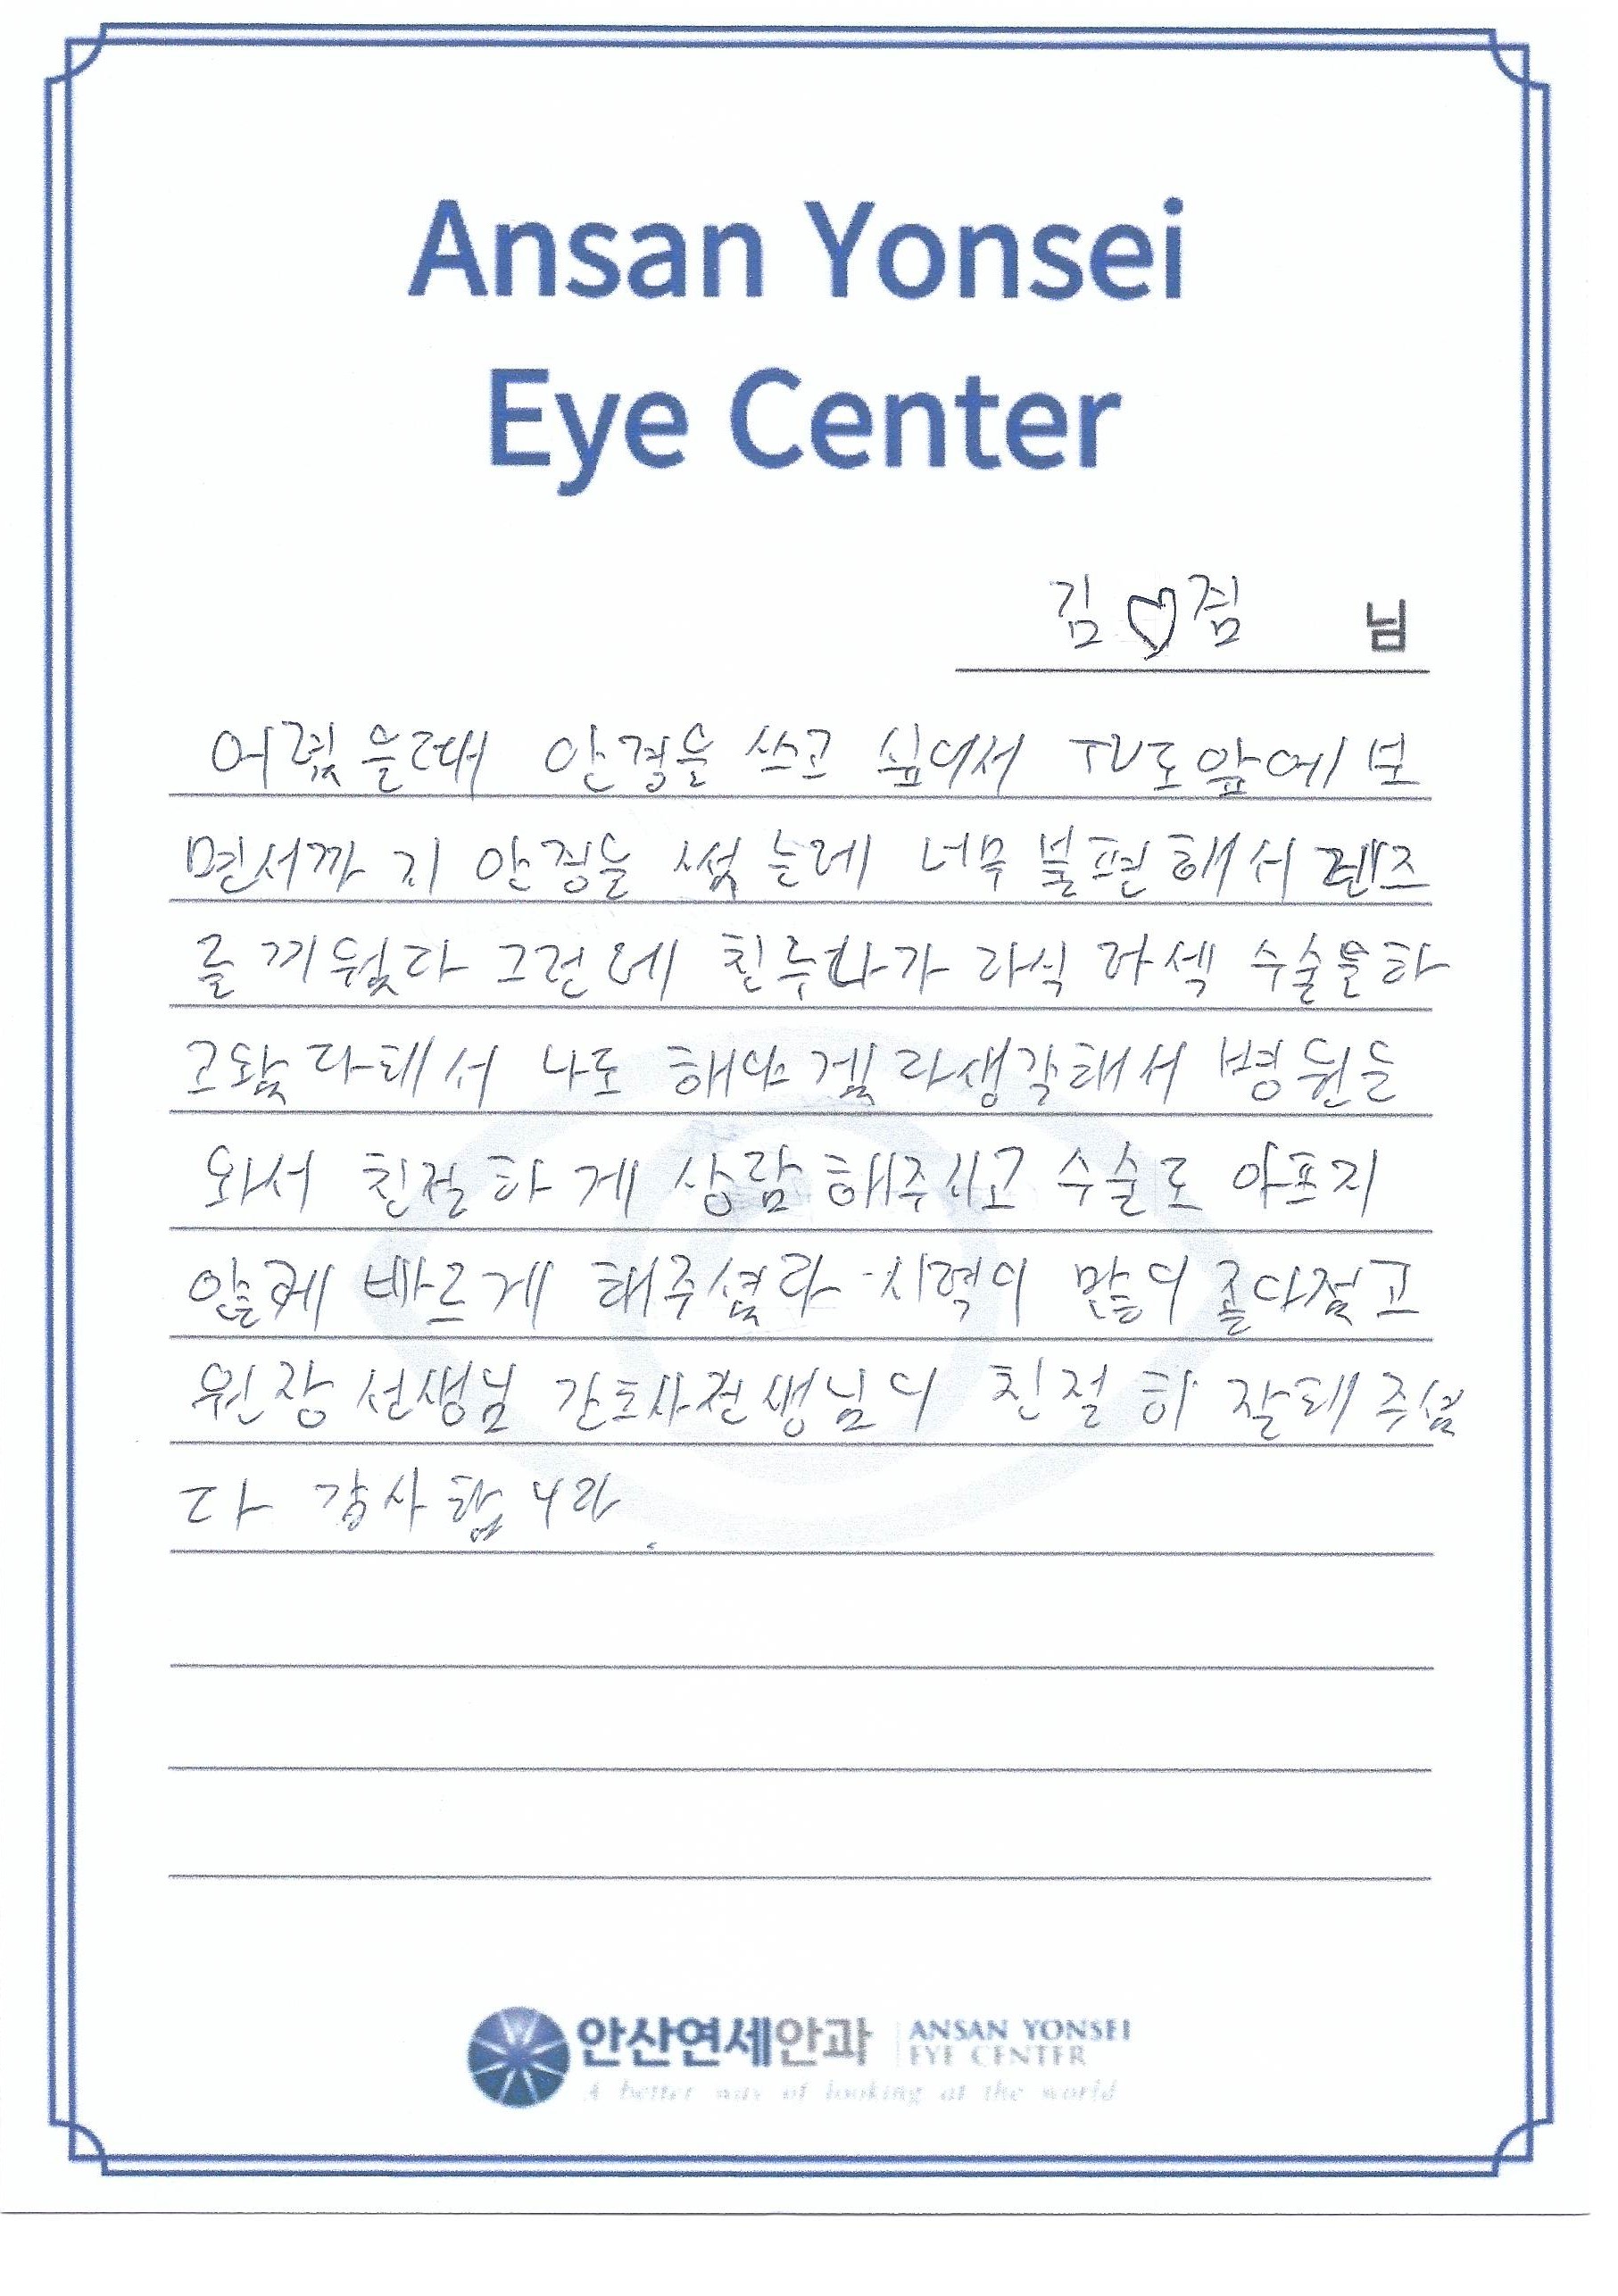 Ansan Yonsei
Eye Center
김♡점 님
어렸을때 안경을 쓰고 싶어서 TV도앞에보
면서까지 안경을 썼는데 너무 불편해서 렌즈
를 끼웠다 그런데 친누나가 라식 라섹 수술을하
고왔다해서 나도 해야겠다생각해서 병원을
와서 친절하게 상담해주시고 수술도 아프지
않게 바르게 해주셨다 시력이 많이 좋아졌고
원장선생님 간호사선생님이 친절히 잘해주셨
다 감사합니다.
안산연세안과 ANSAN YONSEI
EYE CENTER
A better way of looking at the world